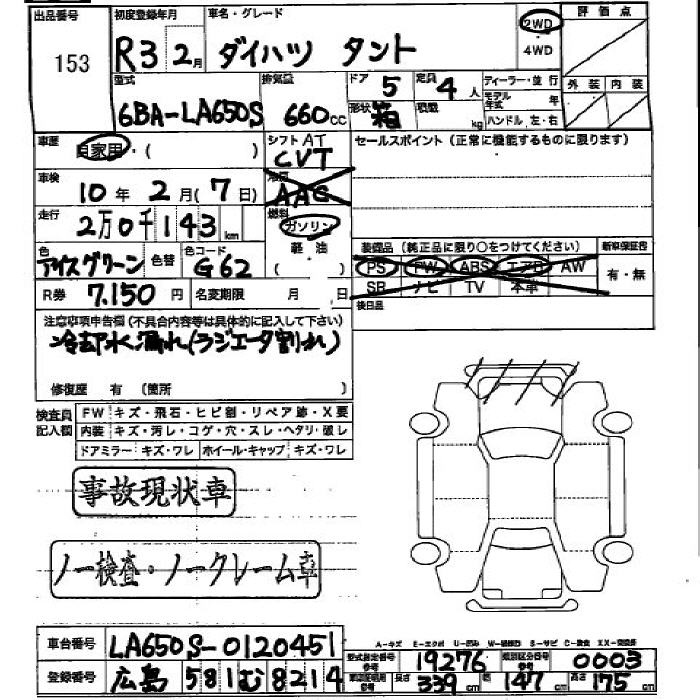 出品番号 153
初度登録年月 R3 2月
車名・グレード ダイハツ タント
2WD
・4WD
評価点
外装 内装
型式 6BA-LA650S
排気量 660cc
ドア 5 定員 4人
形状 箱 積載 kg
ディーラー・並行
モデル年式 年
ハンドル 左・右
車歴 自家用・( )
シフト AT CVT
セールスポイント (正常に機能するものに限ります)
車検 10年 2月(7日)
AAC
走行 2万0千143km
燃料 ガソリン
軽油
( )
色 アイスグリーン 色替 色コード G62
装備品 (純正品に限り○をつけてください) 新車保証書
PS PW ABS エアB AW
SR ナビ TV 本革
有・無
後日品
R券 7,150円 名変期限 月 日
注意事項申告欄(不具合内容等は具体的に記入して下さい)
冷却水漏れ(ラジエータ割れ)
修復歴 有 (箇所
検査員記入欄
FW キズ・飛石・ヒビ割・リペア跡・X要
内装 キズ・汚レ・コゲ・穴・スレ・ヘタリ・破レ
ドアミラー キズ・ワレ ホイール・キャップ キズ・ワレ
事故現状車
ノー検査・ノークレーム車
車台番号 LA650S-0120451
登録番号 広島 581む8214
型式指定番号 参考 19276 類別区分番号 参考 0003
車両説明用 参考 長さ 339cm 幅 147cm 高さ 175cm